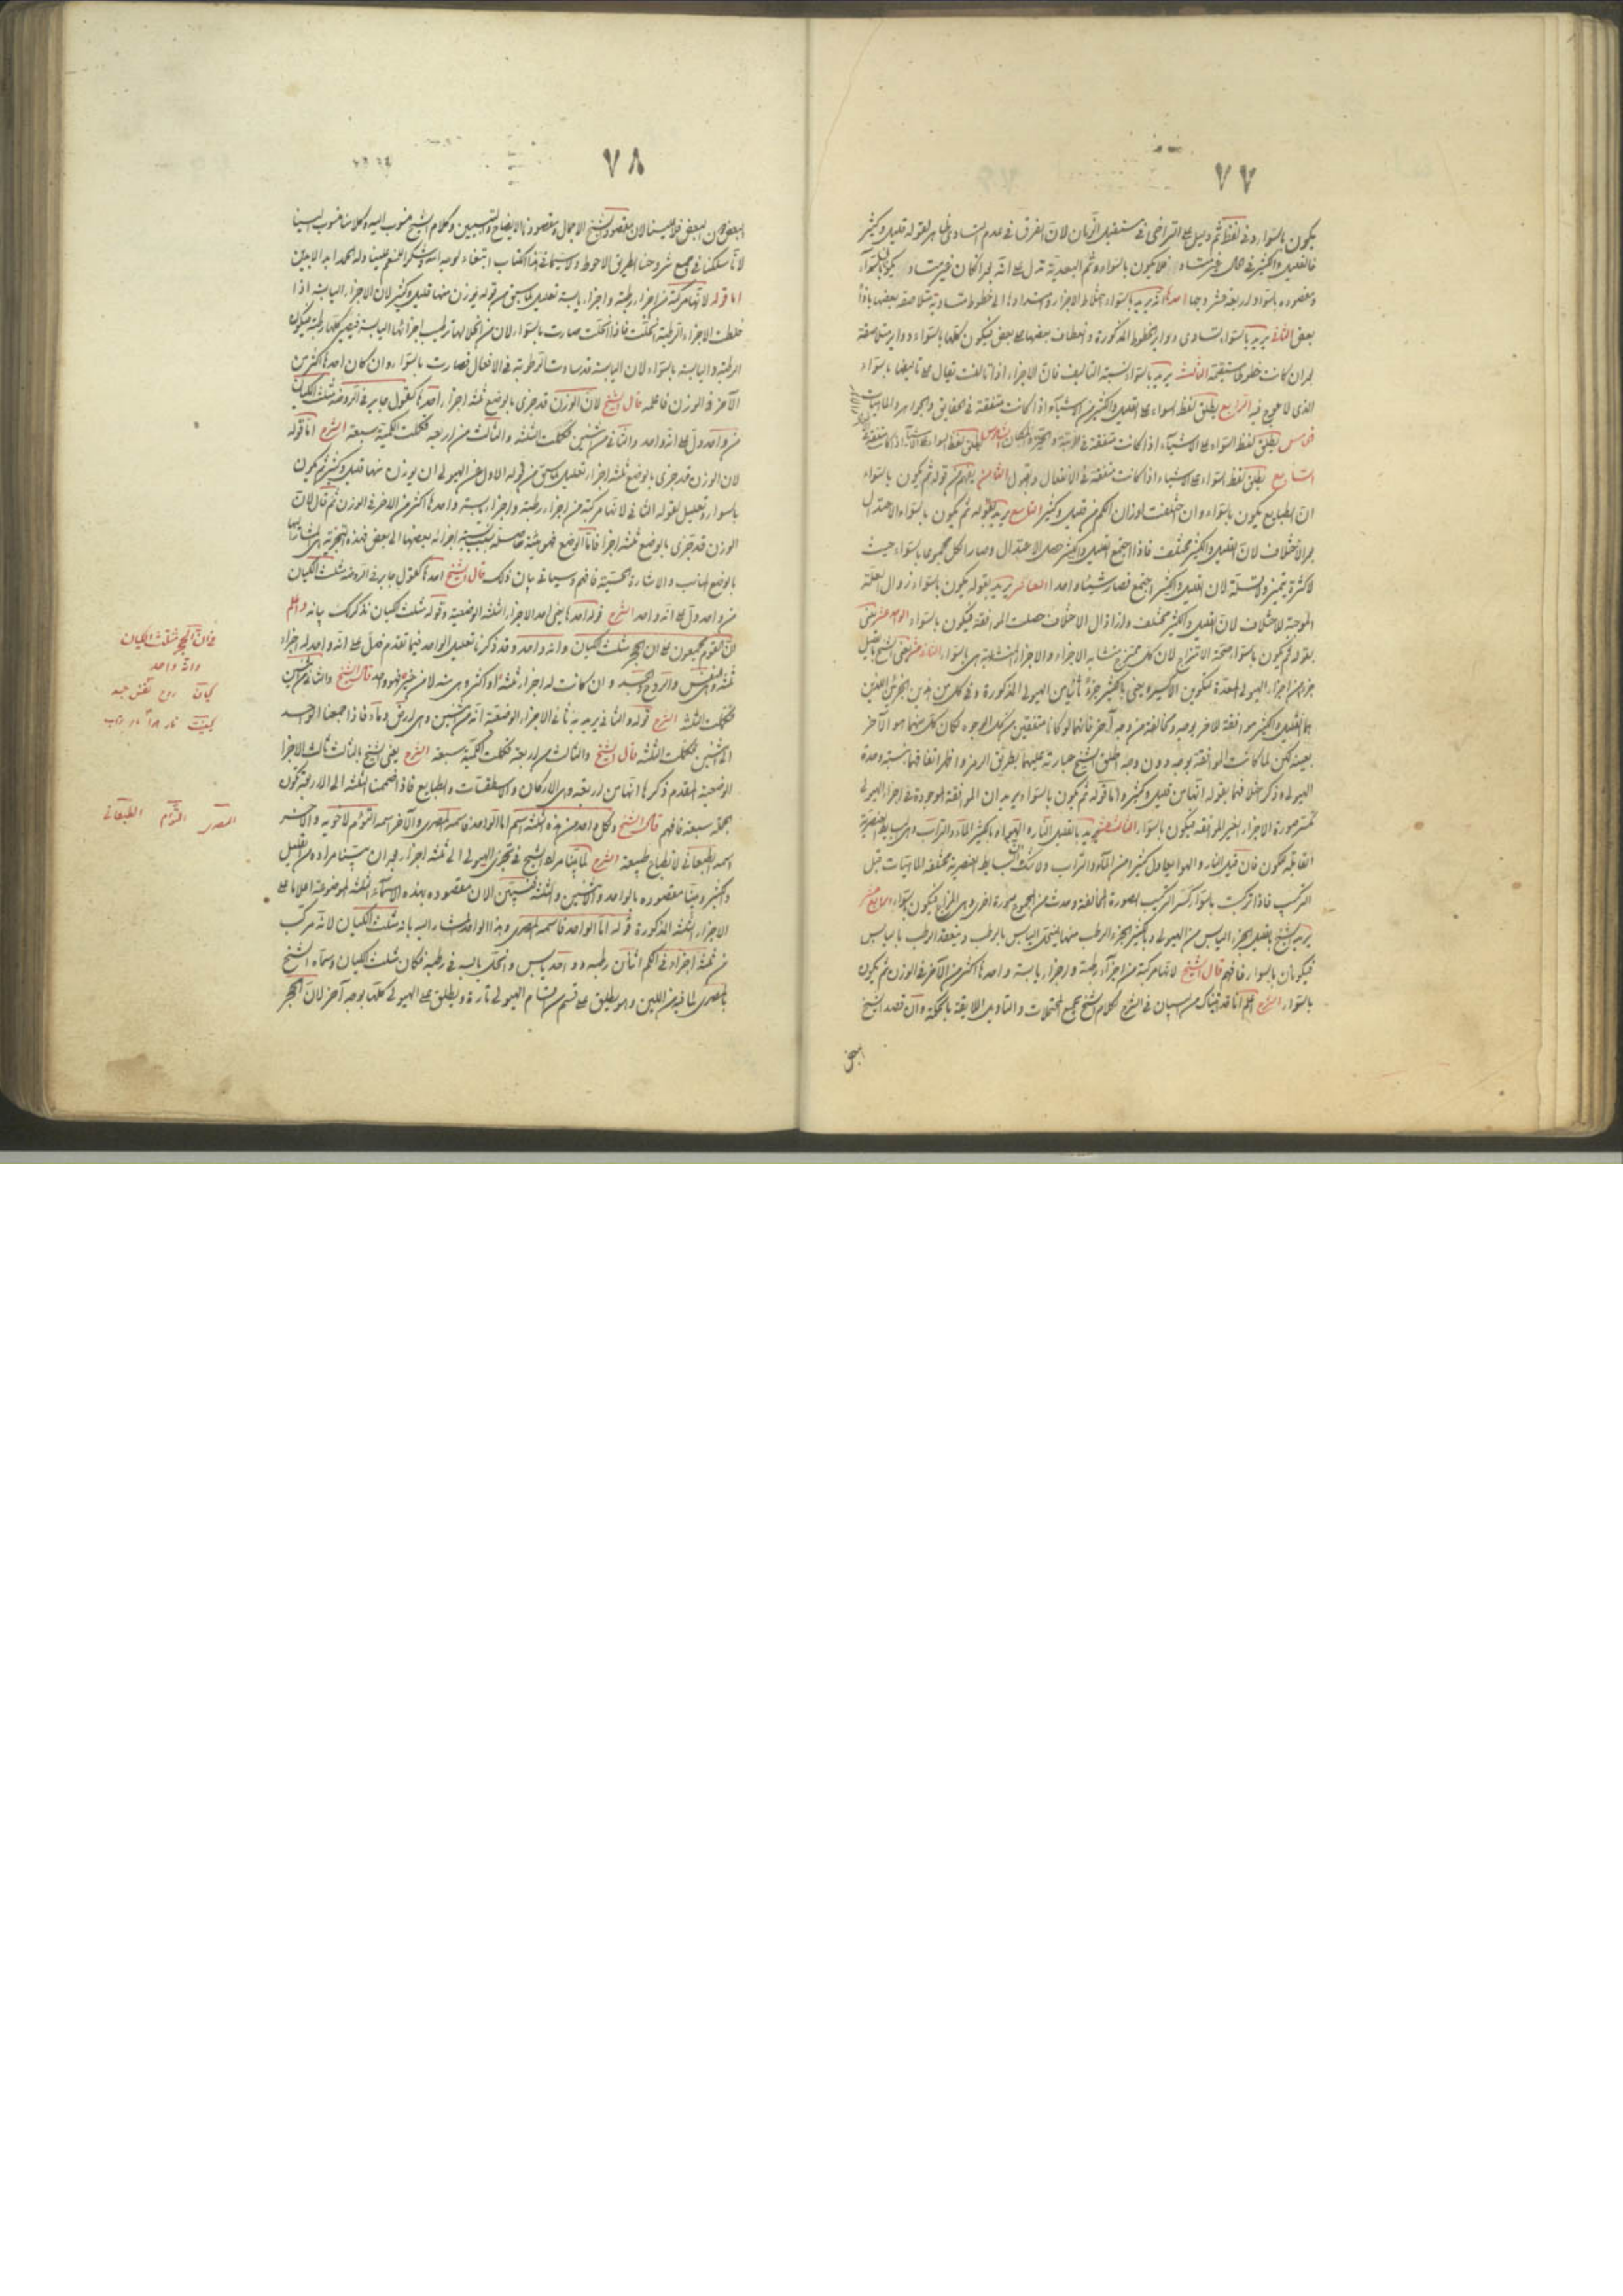 ٧٧
يكون بالسواء وفي لفظ ثم دليل على التراخي في مستقبل الزمان لان الفرق في عدم التساوي ظاهر لقوله قليل وكثير
فالقليل والكثير في الحال غير متساو فلا يكون بالسواء وثم البعدية تدل على انه بعد ان كان غير متساو يكون بالسواء
ومقصوده بالسواء اربعة عشر وجها احدها انه يريد بالسواء اختلاط الاجزاء
بعض الثاني يريد بالسواء تساوي دوائر الخطوط المذكورة وانعطاف بعضها على بعض فيكون كلها بالسواء دوائر متلاصقة
بعد ان كانت خطوطا مستقيمة الثالث يريد بالسواء نسبة التاليف فان الاجزاء اذا تالفت يقال على تاليفها بالسواء
الذي لا عوج فيه الرابع يطلق لفظ السواء على القليل والكثير من الاشياء اذا كانت متفقة في الحقايق والجواهر والماهيات
الخامس يطلق لفظ السواء على الاشياء اذا كانت متفقة في السادس يطلق لفظ السواء على الاشياء اذا كانت متفقة
السابع يطلق لفظ السواء على الاشياء اذا كانت متفقة في الانفعال والقبول الثامن يفهم من قوله ثم يكون بالسواء
ان الطبايع تكون بالسواء وان اختلفت اوزان الكم من قليل وكثير التاسع يريد بقوله ثم يكون بالسواء الاعتدال
بعد الاختلاف لان القليل والكثير مختلف فاذا اجتمع القليل والكثير حصل الاعتدال وصار الكل مجموعا بالسواء حيث
لا كثرة تميز ولا قلة لان القليل والكثير اجتمع فصار شيئا واحدا العاشر يريد بقوله يكون بالسواء زوال العلة
الموجبة للاختلاف لان القليل والكثير مختلف واذا زال الاختلاف حصلت الموافقة فيكون بالسواء الحادي عشر يعني
بقوله ثم يكون بالسواء صحة الامتزاج لان كل ممتزج متشابه الاجزاء والاجزاء المتشابهة هي بالسواء الثاني عشر يعني الشيخ بالقليل
جزءا من اجزاء الهيولى المعدة لتكوين الاكسير ويعني بالكثير جزءا ثانيا من الهيولى المذكورة وفي كل من هذين الجزئين اللذين
هما القليل والكثير موافقة للاخر بوجه ومخالفة من وجه آخر فانهما لو كانا متفقين من كل الوجوه لكان كل منهما هو الآخر
بعينه لكن لما كانت الموافقة بوجه دون وجه اطلق الشيخ عبارته عليهما بطريق الرمز
الهيولى وذكر اختلافهما بقوله انهما من قليل وكثير واما قوله ثم يكون بالسواء يريد ان الموافقة الموجودة في اجزاء الهيولى
صورة الاجزاء الغير الموافقة فيكون بالسواء الثالث عشر يريد بالقليل النار والهواء وبالكثير الماء والتراب
فان قليل النار والهواء يعادل كثيرا من الماء والتراب ولا شك ان البسايط العنصرية مختلفة الماهيات قبل
التركيب فاذا تركبت بالسواء الصورة المخالفة وحدث من المجموع صورة اخرى وهي المزاج فيكون بالسواء الرابع عشر
يريد الشيخ بالقليل الجزء اليابس من الهيولى وبالكثير الجزء الرطب منها لينحل اليابس بالرطب وينعقد الرطب باليابس
فيكونان بالسواء فافهم قال الشيخ لانها مركبة من اجزاء رطبة واجزاء يابسة واحدها اكثر من الآخر في الوزن ثم يكون
بالسواء الشرح اعلم انا قد في الشرح لكلام الشيخ جميع المحتملات والتاويل اللايقة بالحكمة وان قصد الشيخ
البعض
٧٨
البعض من البعض لان مقصود الشيخ الاجمال ومقصودنا الايضاح والتبيين وكلام الشيخ منسوب اليه وكلامنا منسوب الينا
لانا سلكنا في جميع شروحنا الطريق الاحوط ولا سيما في هذا الكتاب ابتغاء لوجه الله وشكرا لنعمه علينا وله الحمد ابد الابدين
اما قوله لانها مركبة من اجزاء رطبة واجزاء يابسة تعليل لما سبق من قوله يوزن منها قليل وكثير لان الاجزاء اليابسة اذا
خلطت الاجزاء الرطبة انحلت فاذا انحلت صارت بالسواء لان من انحلالها ترطيب اجزائها اليابسة فيصير كلها رطبة فيكون
الرطبة واليابسة بالسواء لان اليابسة قد ساوت الرطوبة في الانحلال فصارت بالسواء وان كان احدها اكثر من
الآخر في الوزن فاعلمه قال الشيخ لان الوزن قد جزى بالوضع ثلثة اجزاء احدها كقول جابر في الروضة مثلث الكيان
من واحد دل على انه واحد والثاني من اثنين فكملت الثلثة والثالث من اربعة فكملت الكمية سبعة الشرح اما قوله
لان الوزن قد جزى بالوضع ثلثة اجزاء تعليل لما سبق من قوله الاول عن الهيولى ان يوزن منها قليل وكثير ثم يكون
بالسواء وتعليل لقوله الثاني لانها مركبة من اجزاء رطبة واجزاء يابسة واحدها اكثر من الاخر في الوزن ثم قال لان
الوزن قد جزى بالوضع ثلثة اجزاء فاما الوضع فهو هيئة حاصلة بنسبة اجزائه بعضها الى بعض فهذه التجزية هي المشار اليها
بالوضع المناسب والاشارة الحسية فافهم وسياتي بيان ذلك قال الشيخ احدها كقول جابر في الروضة مثلث الكيان
من واحد دل على انه واحد الشرح قوله احدها يعني احد الاجزاء الثلثة الوضعية وقوله مثلث الكيان نذكر لك بيانه واعلم
ان القوم مجمعون على ان الحجر مثلث الكيان وانه واحد وقد ذكرنا تعليل الواحد فيما تقدم فدل على انه واحد له اجزاء
ثلثة وهي النفس والروح والجسد وان كانت له اجزاء ثلثة او اكثر وهي شيء لا من غيره فهو واحد قال الشيخ والثاني من اثنين
فكملت الثلثة الشرح قوله والثاني يريد به ثاني الاجزاء الوضعية انه من اثنين وهي ارض وماء فاذا جمعنا الواحد
الى اثنين فكملت الثلثة قال الشيخ والثالث من اربعة فكملت الكمية سبعة الشرح يعني الشيخ بالثالث ثالث الاجزاء
الوضعية المقدم ذكرها انها من اربعة وهي الاركان والاسطقسات والطبايع فاذا ضممنا الثلثة الى الاربعة تكون
الجملة سبعة فافهم قال الشيخ ولكل واحد من هذه الثلثة اسم اما الواحد فاسمه المصري والآخر اسمه التوأم لاخويه والاخر
اسمه الطبعاني لانطباع طبيعته الشرح لما بينا مراد الشيخ في تجزي الهيولى الى ثلثة اجزاء بعد ان بينا مراده من القليل
والكثير وبينا مقصوده بالواحد والاثنين والثلثة فنبين الان مقصوده بهذه الاسماء الثلثة الموضوعة اعلاما على
الاجزاء الثلثة المذكورة قوله اما الواحد فاسمه المصري وهذا الواحد المشار اليه بانه مثلث الكيان لانه مركب
من ثلثة اجزاء في الكم اثنان رطبة وواحد يابس وانحل يابسه في رطبه فكان مثلث الكيان وسماه الشيخ
بالمصري لما فيه من اللين وهو يطلق على قسم من اقسام الهيولى تارة ويطلق على الهيولى كلها بوجه آخر لان الحجر
في ان الحجر مثلث الكيان
وانه واحد
كيان روح نفس جسد
كيفيت نار هوا ماء تراب
المصري التوأم الطبعاني